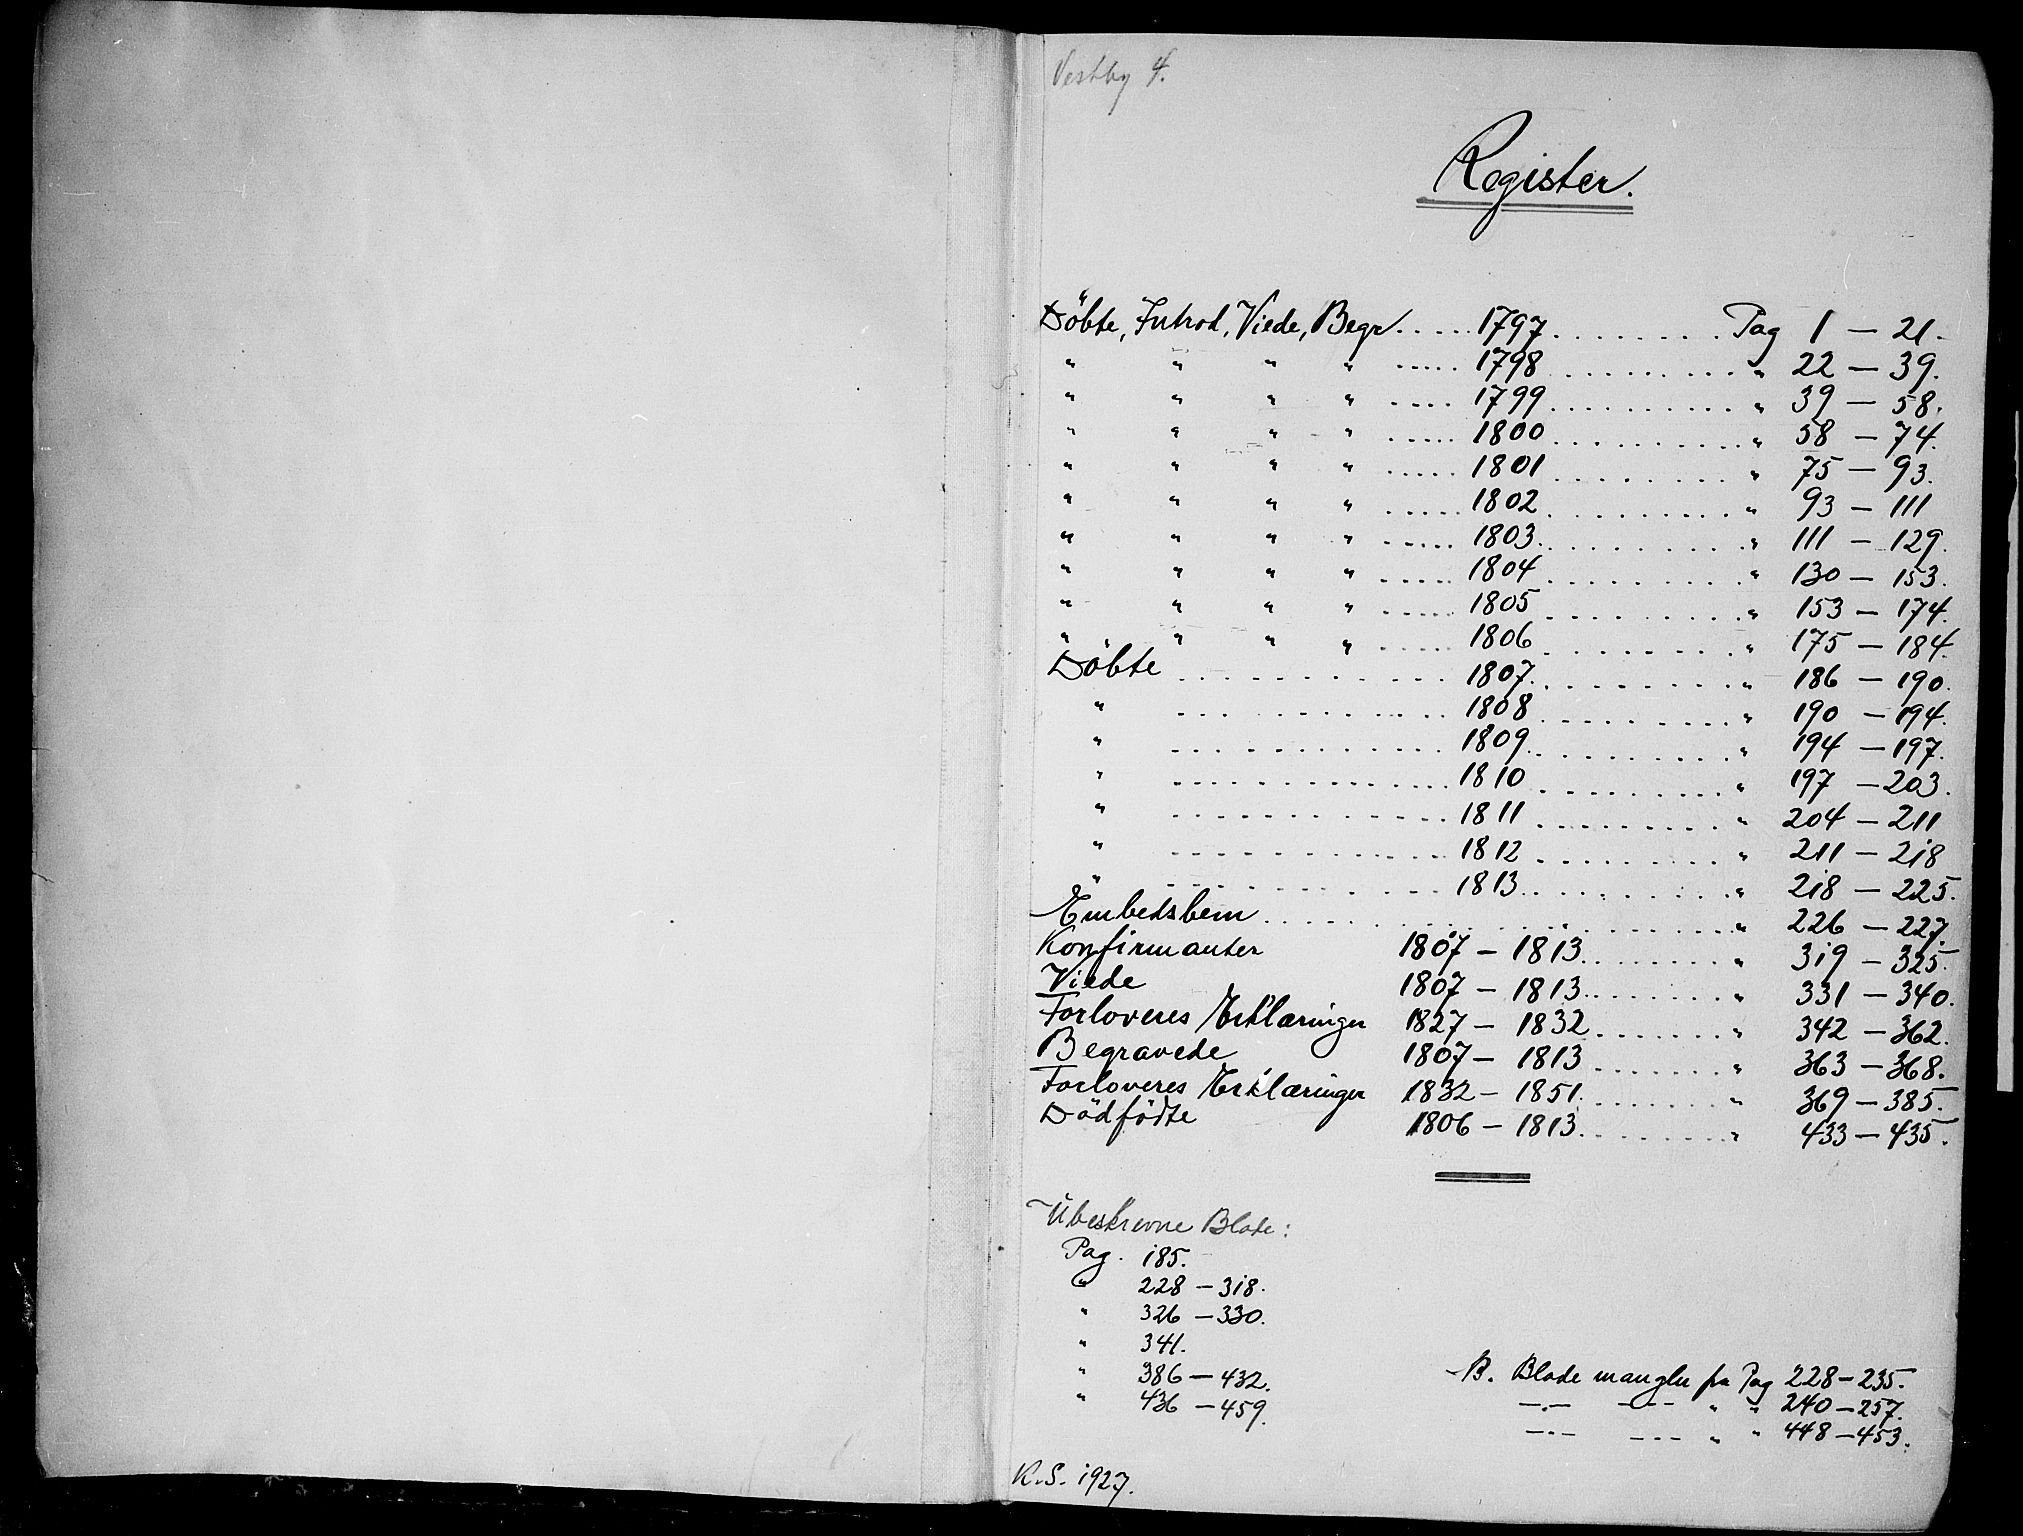 Vestby 4.
Register.
Döbte, Introd, Viede, Begr. .... 1797 ........ Pag 1 — 21.
" " " " ..... 1798 ......... " 22 — 39.
" " " " ..... 1799 ......... " 39 — 58.
" " " " ..... 1800 ......... " 58 — 74.
" " " " ..... 1801 ......... " 75 — 93.
" " " " ..... 1802 ......... " 93 — 111
" " " " ..... 1803 ......... " 111 — 129.
" " " " ..... 1804 ......... " 130 — 153.
" " " " ..... 1805 ......... " 153 — 174.
" " " " ..... 1806 ......... " 175 — 184.
Döbte ............ 1807 ......... " 186 — 190.
" ............ 1808 ......... " 190 — 194.
" ............ 1809 ......... " 194 — 197.
" ............ 1810 ......... " 197 — 203.
" ............ 1811 ......... " 204 — 211
" ............ 1812 ......... " 211 — 218
" ............ 1813 ......... " 218 — 225.
Embedsbem ..................... " 226 — 227.
Konfirmanter 1807 — 1813 ....... " 319 — 325.
Viede 1807 — 1813 ....... " 331 — 340.
Forloveres Erklæringer 1827 — 1832 ....... " 342 — 362.
Begravede 1807 — 1813 ....... " 363 — 368.
Forloveres Erklæringer 1832 — 1851 ....... " 369 — 385.
Dödfödte 1806 — 1813 ....... " 433 — 435.
Ubeskrevne Blade:
Pag. 185.
" 228 — 318.
" 326 — 330.
" 341.
" 386 — 432.
" 436 — 459.
B. Blade mangler fra Pag 228 — 235.
—"— —"— " " 240 — 257.
—"— —"— " " 448 — 453.
K.S. 1927.